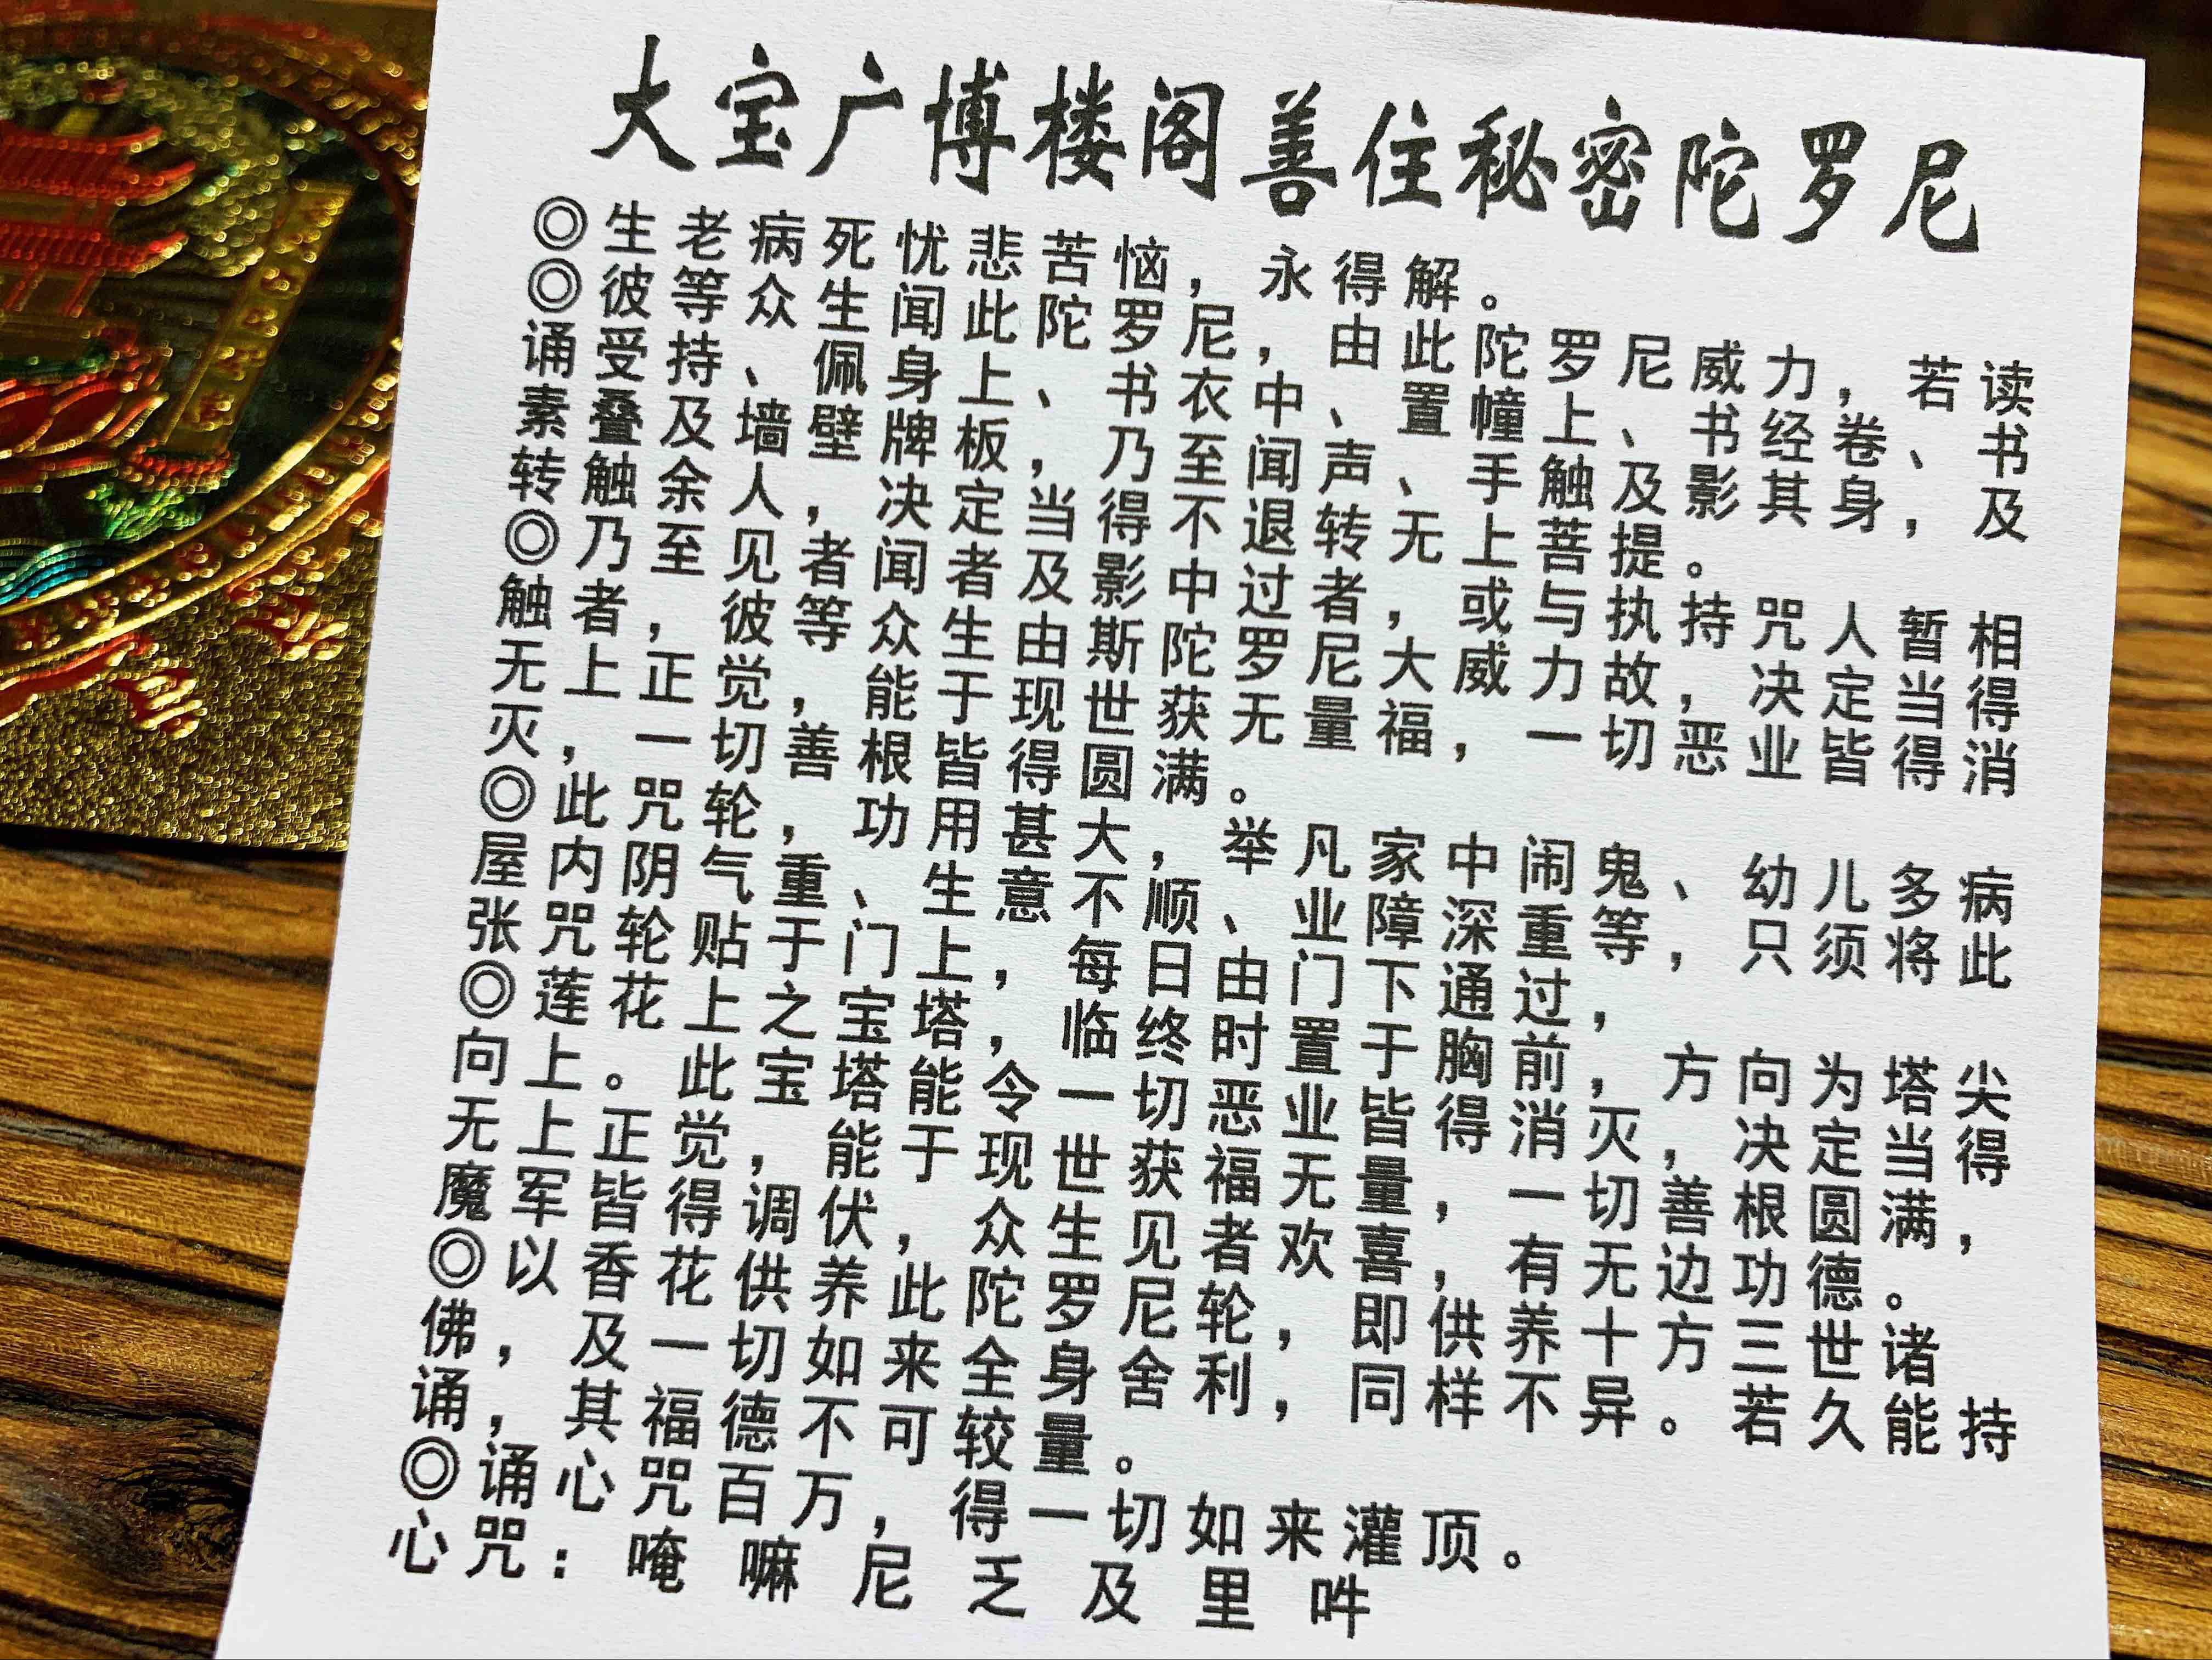 大宝广博楼阁善住秘密陀罗尼
◎生老病死忧悲苦恼，永得解。
◎彼等众生闻此陀罗尼，由此陀罗尼威力，若读
诵受持、佩身上、书衣中、置幢上、书经卷、书
素叠及墙壁牌板，乃至闻声、手触及影其身，及
转触余人，决定当得不退转无上菩提。
◎乃至见者闻者及影中过者，或与执持咒人暂相
触者，彼等众生由斯陀罗尼大威力故，决定当得
无上正觉，能于现世获无量福，一切恶业皆得消
灭，一切善根皆得圆满。
◎此咒轮，功用甚大，举凡家中闹鬼、幼儿多病
屋内阴气重、生意不顺、业障深重等，只须将此
张咒轮贴于门上，每日由门下通过，
◎莲花上之宝塔，临终时置于胸前，方向为塔尖
向上。此宝塔能令一切恶业皆得消灭，决定当得
无上正觉，能于现世获福无量，一切善根圆满，
魔军皆得调伏，众生见者欢喜，有无边功德。
◎以香花供养此陀罗尼轮，即供养十方三世诸
佛，及一切如来全身舍利，同样不异。若久能持
诵，其福德不可较量。
◎诵心咒百万，得一切如来灌顶。
心咒：唵嘛尼乏及里吽